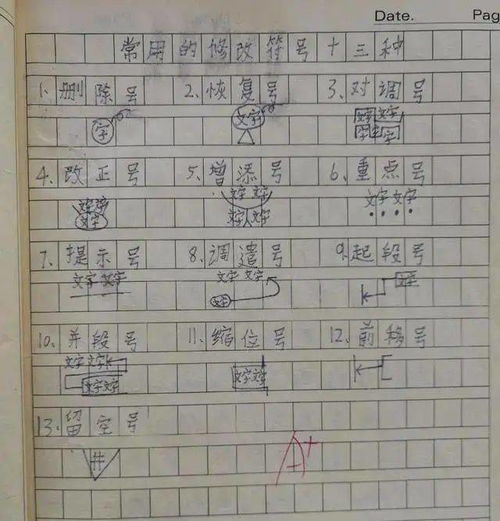 Date. Pag
常用的修改符号十三种
1.删除号 2.恢复号 3.对调号
字 文字 文字文字
4.改正号 5.增添号 6.重点号
文字 文字 文字 文字 文字
文字 文字 文字
7.提示号 8.调遣号 9.起段号
文字 文字 文字 文字 文字
文字
10.并段号 11.缩位号 12.前移号
文字 文字 文字文字
文字文字
13.留空号
A+